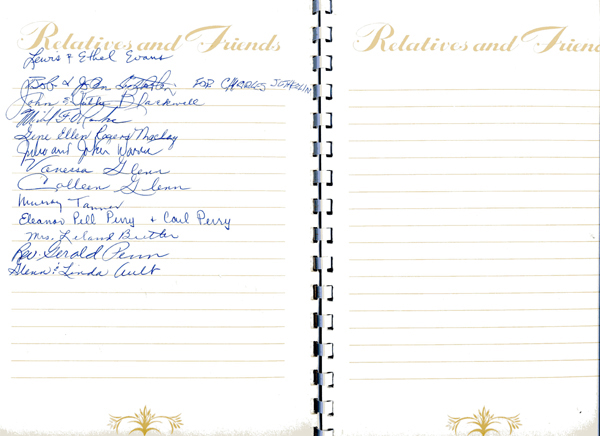 Relatives and Friends
Lewis & Ethel Evans
Bob & JoAnn FOR CHARLES
John & Blackwell
Gene Ellen Rogers
and John Warren
Vanessa Glenn
Colleen Glenn
Murray Tanner
Eleanor Pell Perry & Carl Perry
Mrs. Leland Butler
Rev. Gerald Penn
Glenn & Linda Ault
Relatives and Friends